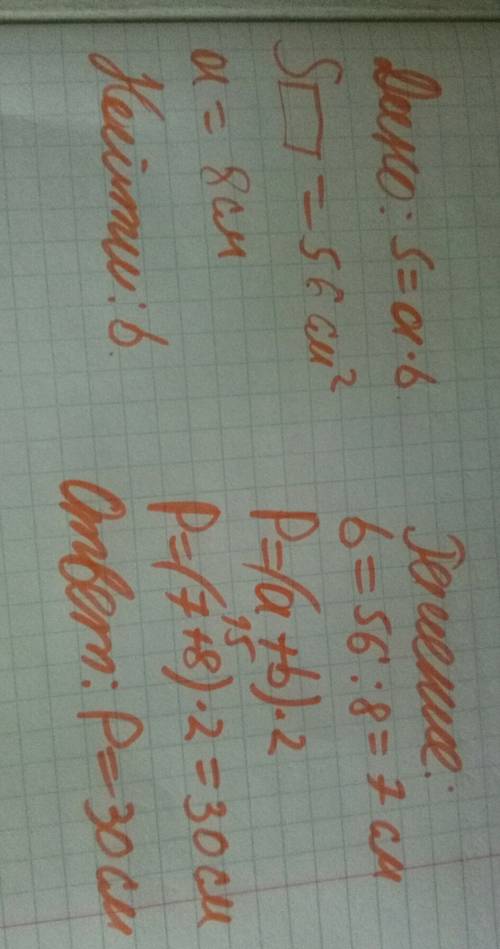 Дано: S=a·b
S▭ = 56 см²
a = 8 см
Найти: b.
Решение:
b = 56 : 8 = 7 см
P=(a+b)·2
15
P=(7+8)·2=30 см
Ответ: P=30 см